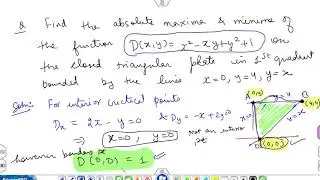 Q Find the absolute maxima & minima of
the function D(x,y) = x² - xy + y² + 1 on
the closed triangular plate in 1st quadrant
bounded by the lines x=0, y=4, y=x
Soln: For interior critical points
Dx = 2x - y = 0 & Dy = -x + 2y = 0
⇒ x=0, y=0
Not an interior pt
however boundary pt
D(0,0) = 1
A(0,4) y=4 B(4,4)
y=x
(0,0)